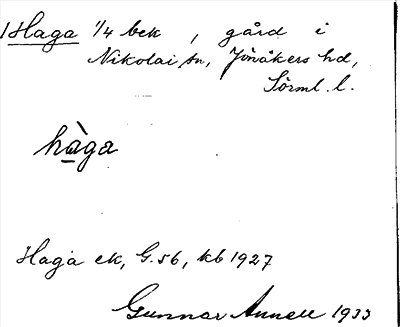 Haga 1/4 bek, gård i
Nikolai sn, Jönåkers hd,
Sörml. l.
hàga
Haga ek, G.56, kb 1927
Gunnar Annell 1933